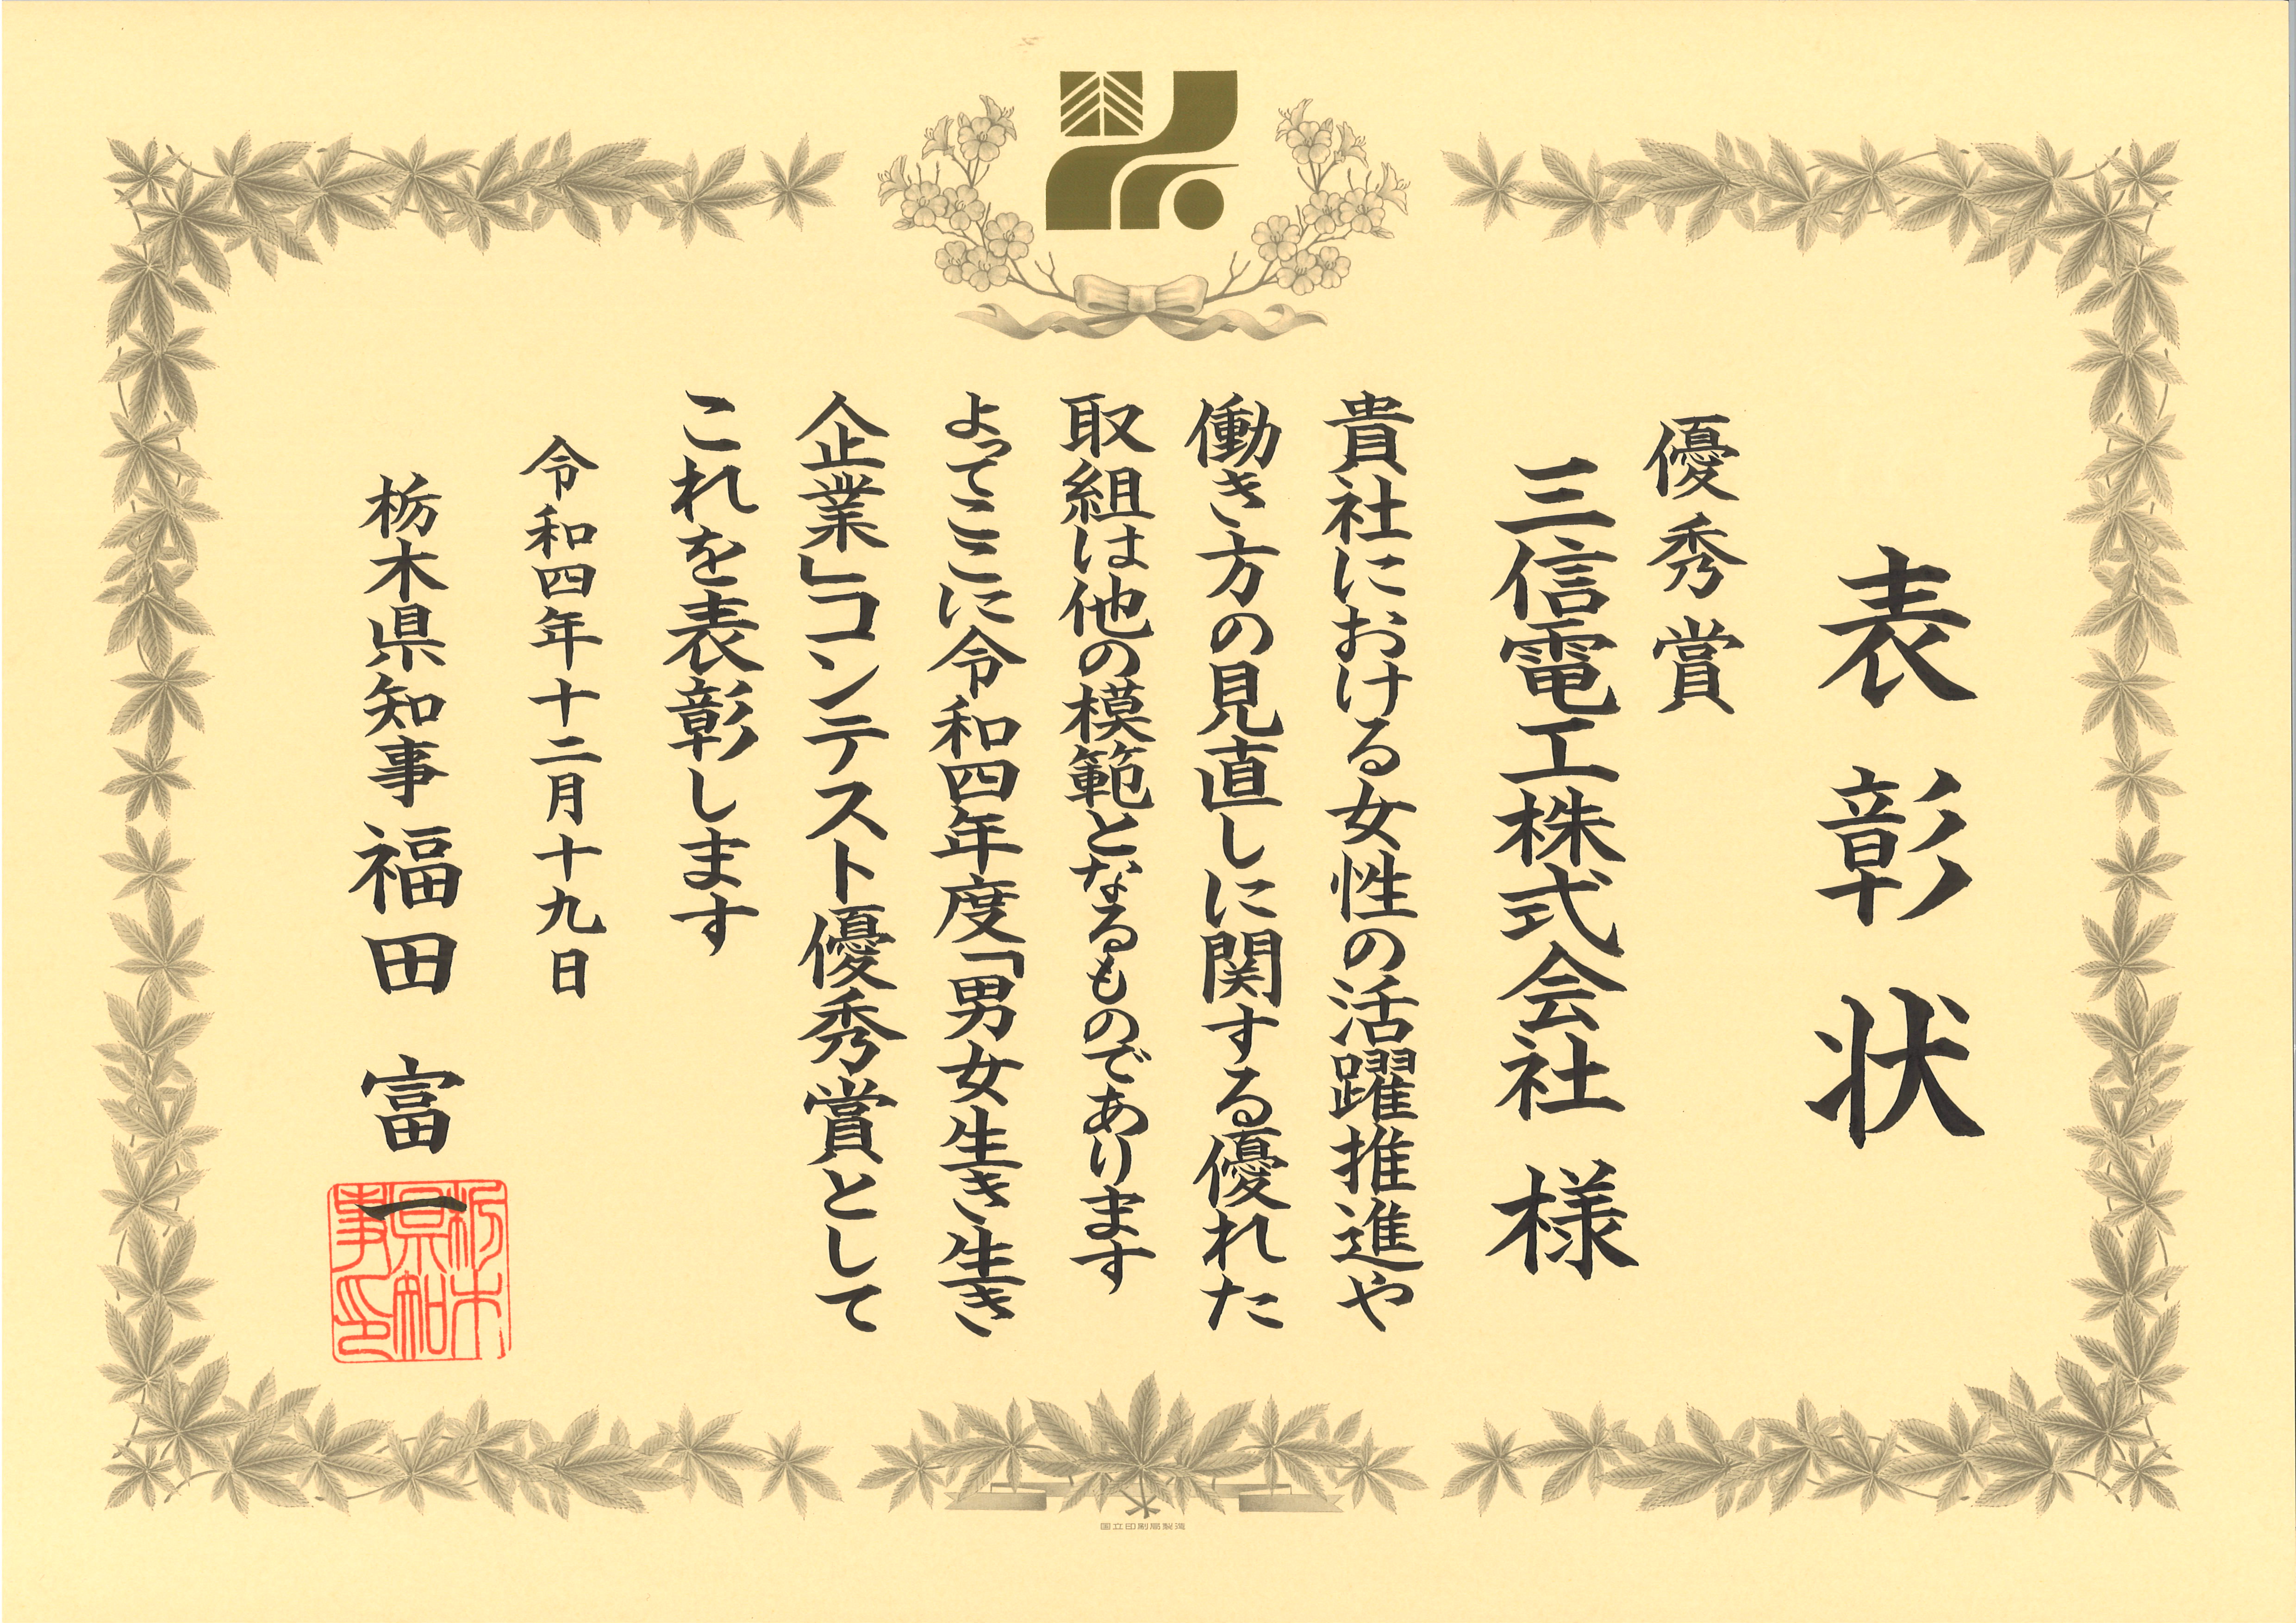 表彰状
優秀賞
三信電工株式会社 様
貴社における女性の活躍推進や
働き方の見直しに関する優れた
取組は他の模範となるものであります
よってここに令和四年度「男女生き生き
企業」コンテスト優秀賞として
これを表彰します
令和四年十二月十九日
栃木県知事 福田富一
栃木県知事印
国立印刷局製造